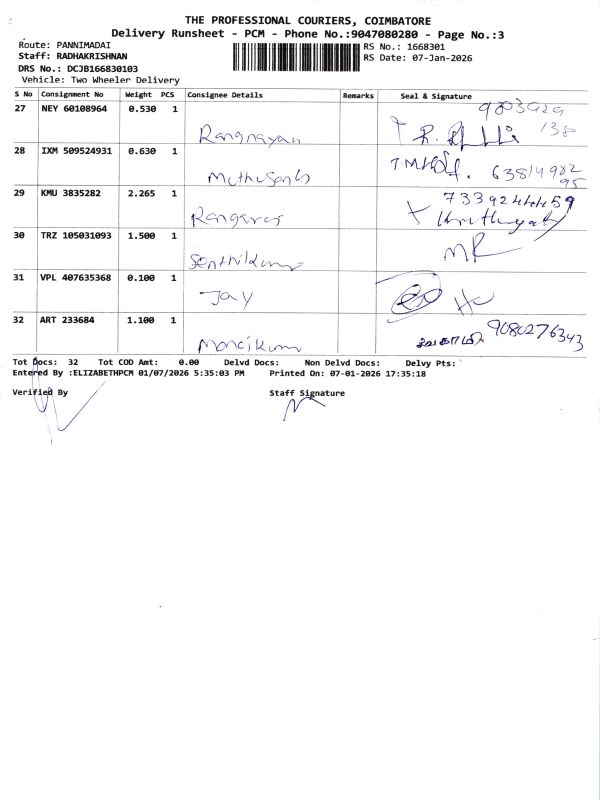 THE PROFESSIONAL COURIERS, COIMBATORE
Delivery Runsheet - PCM - Phone No.:9047080280 - Page No.:3
Route: PANNIMADAI
Staff: RADHAKRISHNAN
DRS No.: DCJB166830103
Vehicle: Two Wheeler Delivery
RS No.: 1668301
RS Date: 07-Jan-2026
S No Consignment No Weight PCS Consignee Details Remarks Seal & Signature
27 NEY 60108964 0.530 1 Rangnayan
28 IXM 509524931 0.630 1 63814982
95
29 KMU 3835282 2.265 1 Rangaras 7339244459
30 TRZ 105031093 1.500 1 Senthilkumr MR
31 VPL 407635368 0.100 1 Jay
32 ART 233684 1.100 1 9080276343
Tot Docs: 32 Tot COD Amt: 0.00 Delvd Docs: Non Delvd Docs: Delvy Pts:
Entered By :ELIZABETHPCM 01/07/2026 5:35:03 PM Printed On: 07-01-2026 17:35:18
Verified By Staff Signature